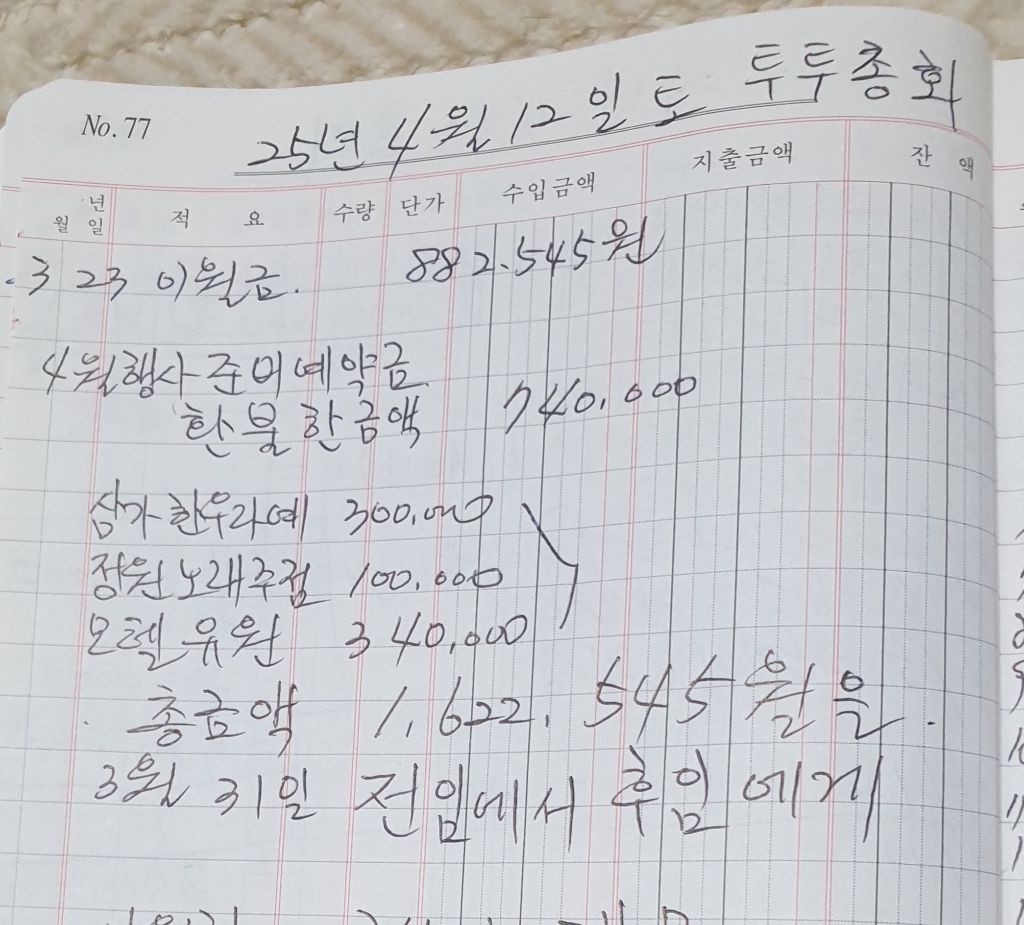 No. 77
25년 4월 12일 토 투투총회
월 년일 적 요 수량 단가 수입금액 지출금액 잔 액
3 23 이월금. 882.545원
4월행사준비예약금
환불한금액 740.000
삼가한우라예 300,000
정원노래주점 100,000
모텔유원 340,000
총금액 1,622,545원을.
3월 31일 전임에서 후임에게